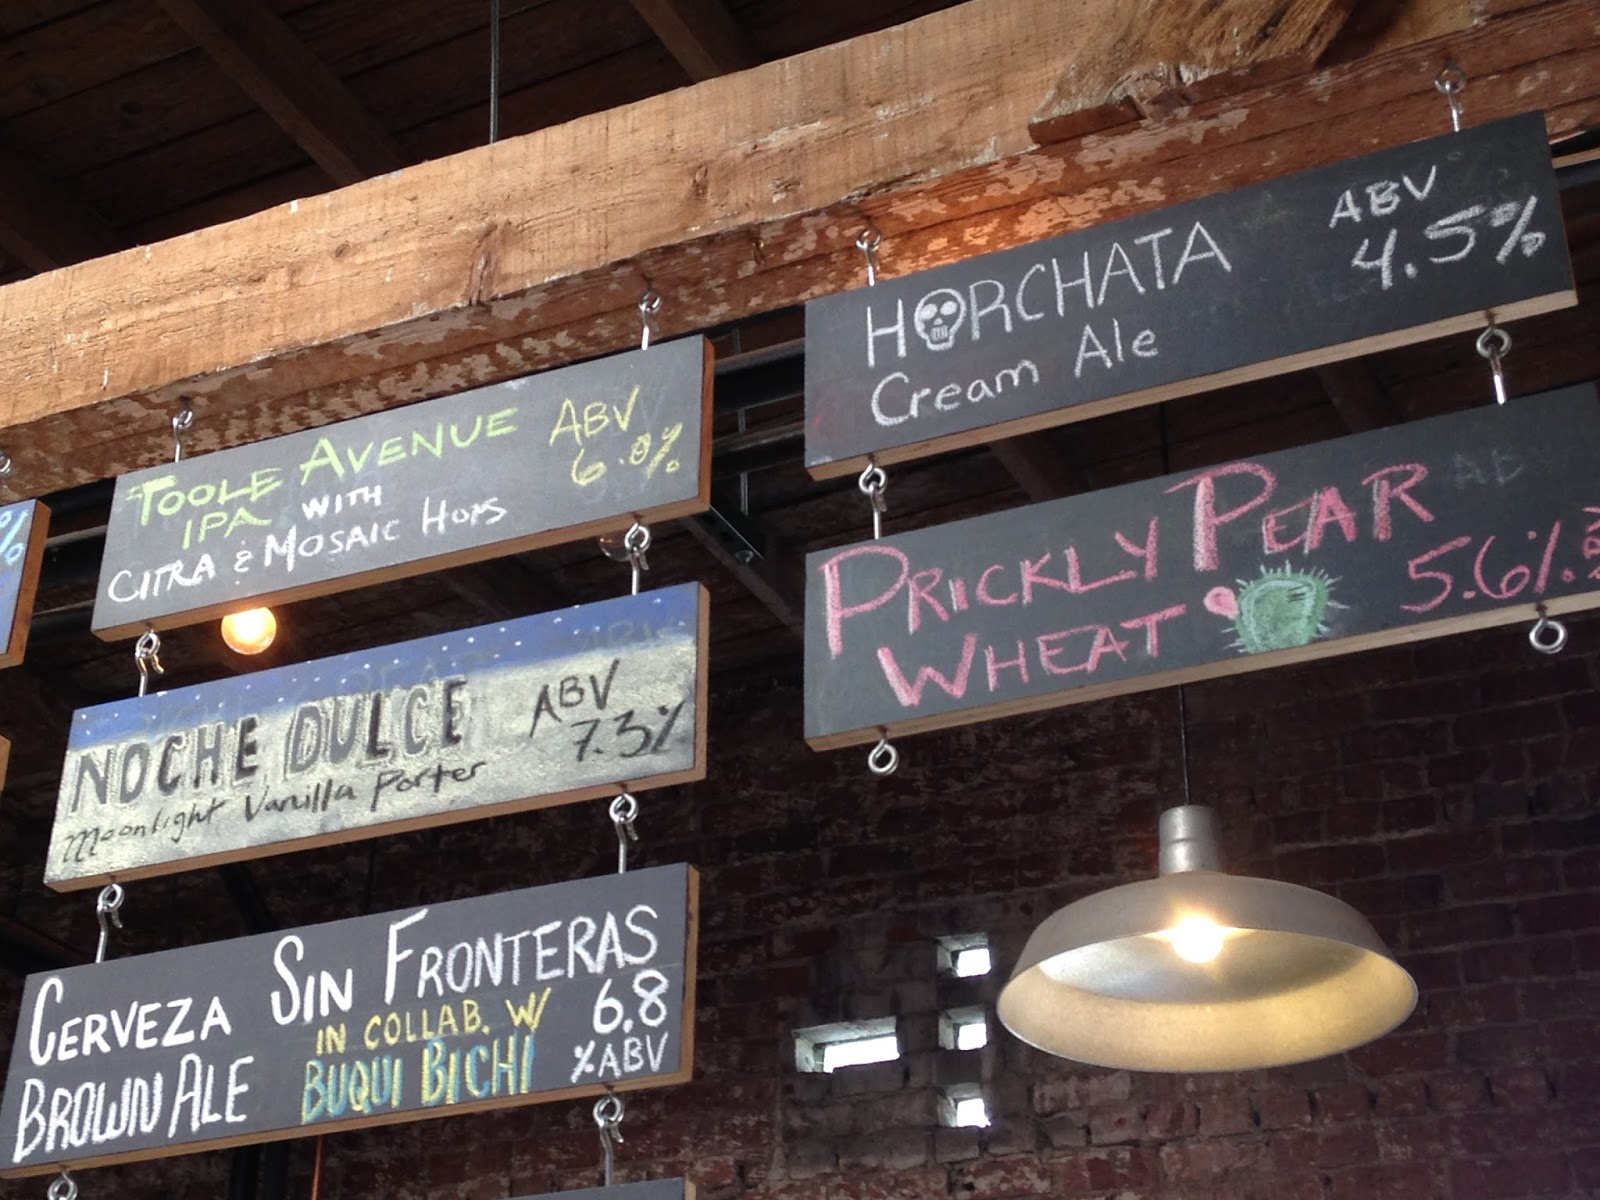 TOOLE AVENUE
IPA WITH
CITRA & MOSAIC HOPS
ABV
6.8%
NOCHE DULCE
Moonlight Vanilla Porter
ABV
7.3%
CERVEZA SIN FRONTERAS
BROWN ALE
IN COLLAB. W/
BUQUI BICHI
6.8
% ABV
HORCHATA
Cream Ale
ABV
4.5%
PRICKLY PEAR
WHEAT
5.6%